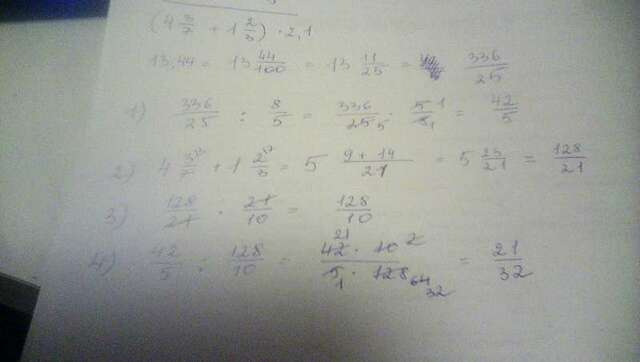 (4 3/7 + 1 2/3) · 2,1
13,44 = 13 44/100 = 13 11/25 = 336/25
1) 336/25 : 8/5 = 336/25 5 · 5 1/8 1 = 42/5
2) 4 3/7 + 1 2 7/3 = 5 9 + 14/21 = 5 23/21 = 128/21
3) 128/21 · 21/10 = 128/10
4) 42/5 : 128/10 = 21 42 · 10 2/5 1 · 128 64 32 = 21/32